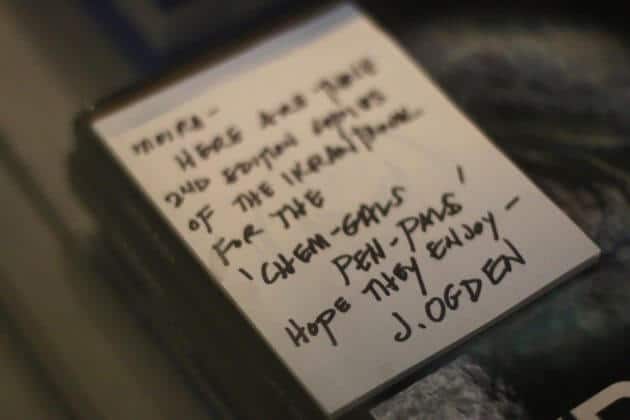 MOIRA-
HERE ARE THE
2ND EDITION COPIES
OF THE IKRAN
FOR THE
'CHEM-GALS
PEN-PALS'
HOPE THEY ENJOY-
J. OGDEN